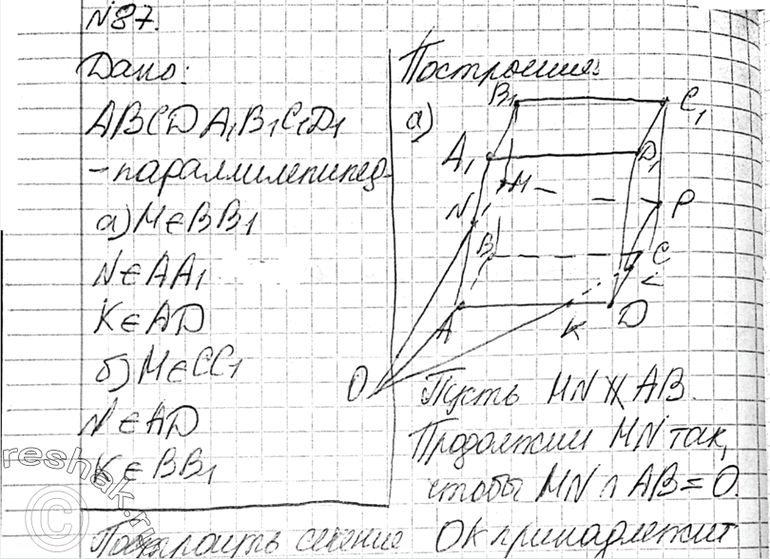 №87.
Дано:
ABCDA₁B₁C₁D₁
-параллилепипед
а) M∈BB₁
N∈AA₁
K∈AD
б) M∈CC₁
N∈AD
K∈BB₁
Построить сечение
Построение:
а)
B₁
C₁
A₁
D₁
M
N
P
B
C
L
A
K
D
O
Пусть MN ∦ AB.
Продолжим MN так,
чтобы MN ∩ AB = O.
OK принадлежит
reshak.ru
©